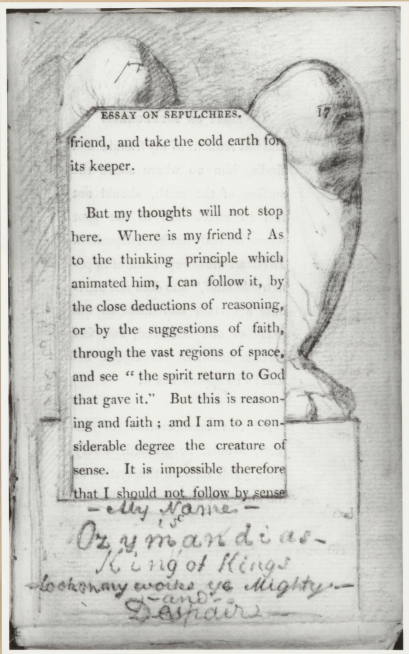 ESSAY ON SEPULCHRES. 17
friend, and take the cold earth for
its keeper.
But my thoughts will not stop
here. Where is my friend? As
to the thinking principle which
animated him, I can follow it, by
the close deductions of reasoning,
or by the suggestions of faith,
through the vast regions of space,
and see “ the spirit return to God
that gave it.” But this is reason-
ing and faith ; and I am to a con-
siderable degree the creature of
sense. It is impossible therefore
that I should not follow by sense
- My Name -
is
Ozymandias -
King of Kings
- Look on my works ye Mighty -
- and -
Despair -